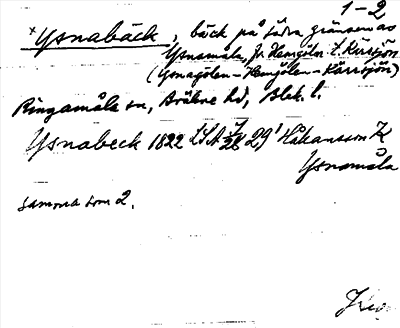 1-2
×Ysnabäck, bäck på södra gränsen av
Ysnamåla, fr. Hemgöln t. Kärrsjön
(Ysnagölen-Hemgölen-Kärrsjön)
Ringamåla sn, Bräkne hd, Blek. l.
Ysnabeck 1822 LSA 29' Håkansson K
Ysnamåla
samma som 2.